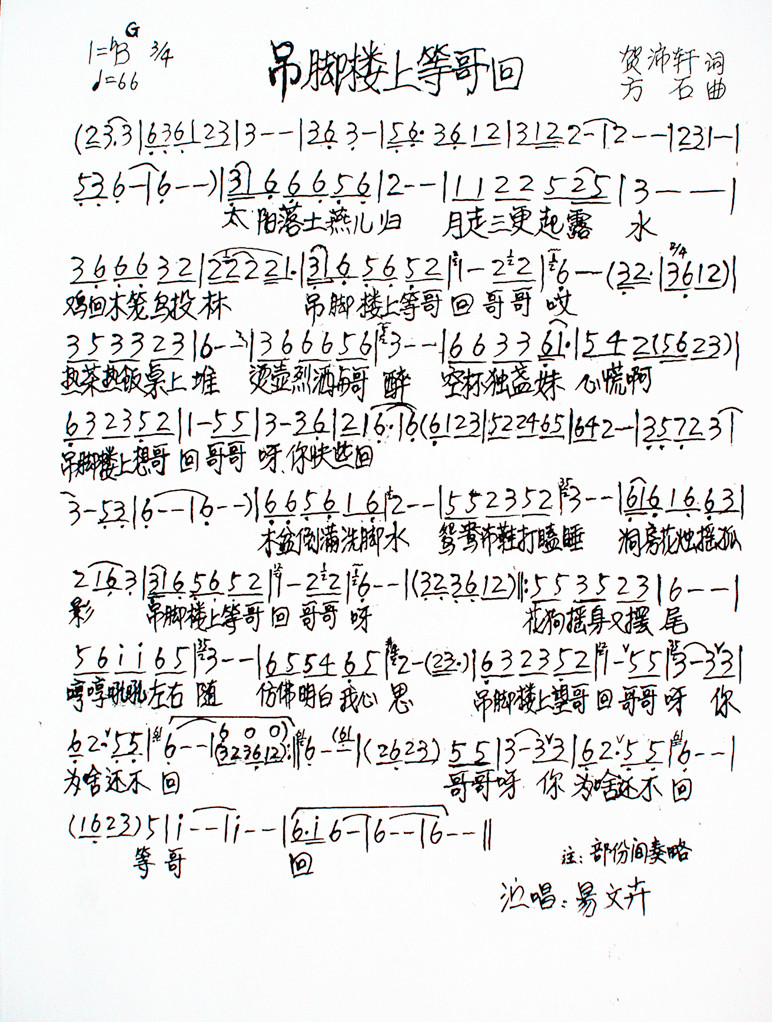 1=♭B G 3/4
♩=66
吊脚楼上等哥回
贺沛轩 词
方石 曲
(23.3|636123|3--|363-|56.3612|3122-|2--|231-|
536-|6--)|3166656|2--|1122525|3---|
太阳落土燕儿归 月走三更起露 水
366632|22221.|3165652|1-22|6--(32.|3612)|
鸡回木笼鸟投林 吊脚楼上等哥回哥哥哎
353323|6--|366656|3--|663361.|542(5623)|
热茶热饭桌上堆 烫壶烈酒与哥醉 空杯独盏妹心慌啊
632352|1-55|3-36|216.|6(6123|522465|642--|35723|
吊脚楼上想哥回哥哥呀你快些回
3-53|6--|6--)|665616|2--|552352|3--|6161663|
木盆倒满洗脚水 鸳鸯布鞋打瞌睡 洞房花烛摇孤
2163|3165652|1-22|6--|(323612)|:553523|6--|
影 吊脚楼上等哥回哥哥呀 花狗摇身又摆尾
561165|3--|655465|2-(23.)|632352|1-55|3-33|
哼哼吼吼左右随 仿佛明白我心思 吊脚楼上望哥回哥哥呀 你
62.55|6--|600(323612):|6-(61|(2623)55|3-33|62.55|6--|
为啥还不回 哥哥呀 你为啥还不回
(1623)5|i--|i--|6.i6-|6--|6--||
等哥 回
注:部份间奏略
演唱:易文卉